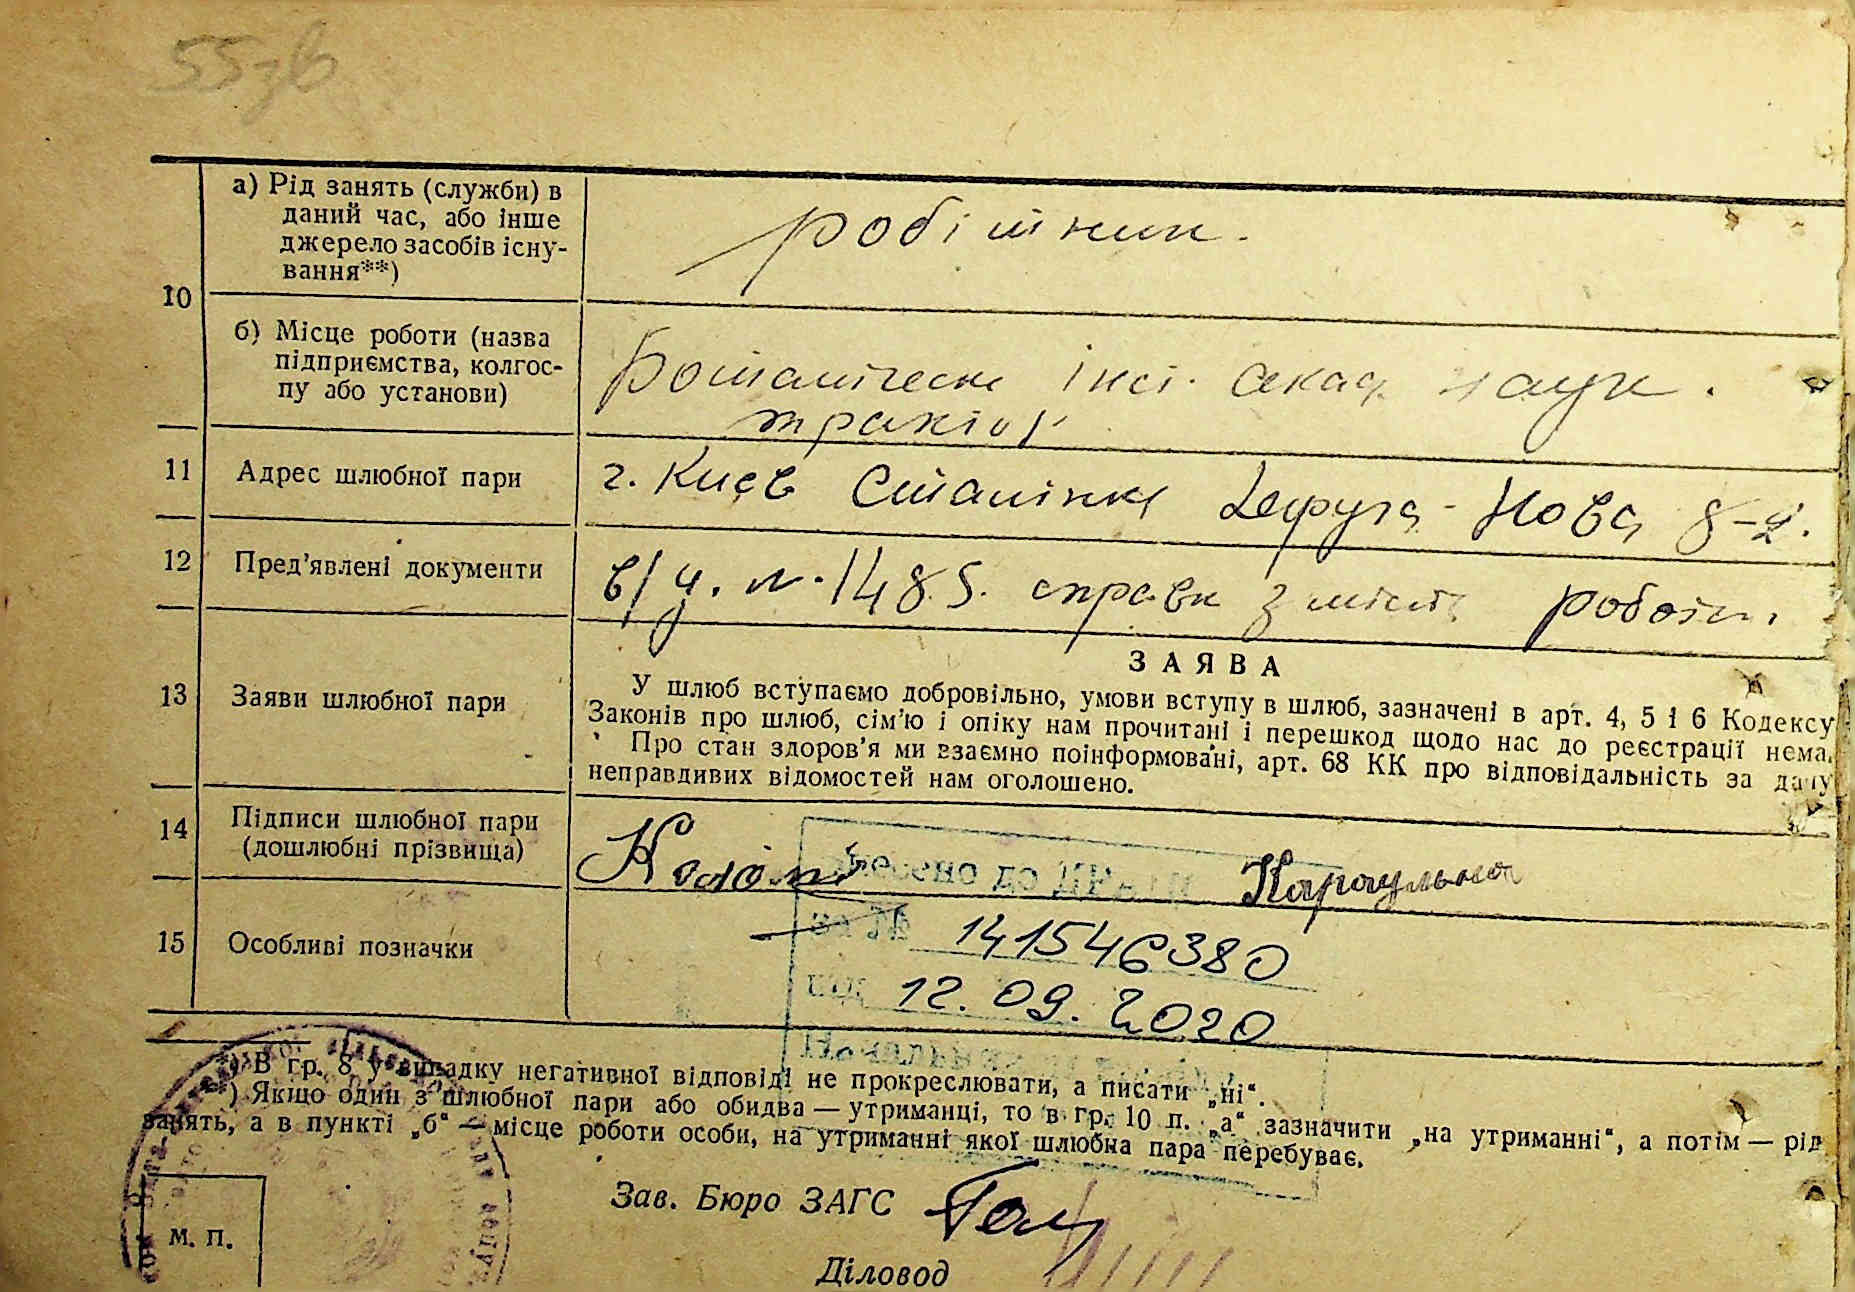 55зв
10
а) Рід занять (служби) в
даний час, або інше
джерело засобів існу-
вання**)
робітник.
б) Місце роботи (назва
підприємства, колгос-
пу або установи)
Ботаническ інст. акад. наук.
11
Адрес шлюбної пари
г. Києв Сталінка Друга-Нова 8-2.
12
Пред’явлені документи
в/ч. № 1485. справк з мість роботи.
13
Заяви шлюбної пари
ЗАЯВА
У шлюб вступаємо добровільно, умови вступу в шлюб, зазначені в арт. 4, 5 і 6 Кодексу
Законів про шлюб, сім’ю і опіку нам прочитані і перешкод щодо нас до реєстрації нема.
Про стан здоров’я ми взаємно поінформовані, арт. 68 КК про відповідальність за дачу
неправдивих відомостей нам оголошено.
14
Підписи шлюбної пари
(дошлюбні прізвища)
Караульна
внесено до ДРАЦС
за №
141546380
15
Особливі позначки
від 12.09.2020
*) В гр. 8 у випадку негативної відповіді не прокреслювати, а писати „ні“.
) Якщо один з шлюбної пари або обидва — утриманці, то в гр. 10 п. „а“ зазначити „на утриманні“, а потім — рід
занять, а в пункті „б“ — місце роботи особи, на утриманні якої шлюбна пара перебуває.
Зав. Бюро ЗАГС
М. П.
Діловод